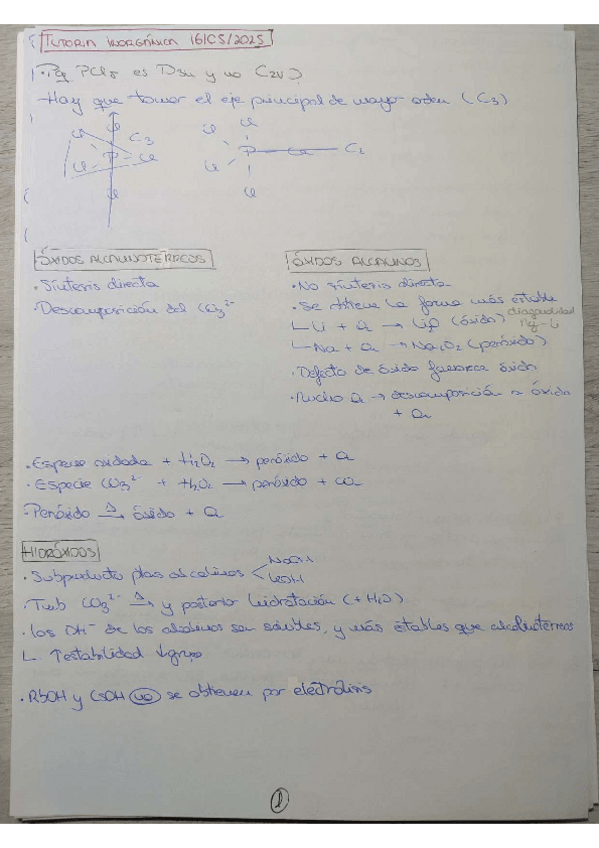 TUTORIA INORGÁNICA 16/05/2025
· Pq PCl5 es D3h y no C2v)
- Hay que tomar el eje principal de mayor orden (C3)
Cl Cl C3 Cl Cl P Cl Cl
Cl Cl P Cl C2 Cl Cl
ÓXIDOS ALCALINOTÉRREOS
· Síntesis directa
· Descomposición del CO3 2-
ÓXIDOS ALCALINOS
· No síntesis directa
· Se obtiene la forma más estable
Li + O2 → Li2O (óxido) diagonalidad Mg-Li
Na + O2 → Na2O2 (peróxido)
· Defecto de óxido favorece óxido
· Mucho O2 → descomposición a óxido
+ O2
· Especie oxidada + H2O2 → peróxido + O2
· Especie CO3 2- + H2O2 → peróxido + CO2
· Peróxido Δ→ óxido + O2
HIDRÓXIDOS
· Subproducto alcalinos NaOH
KOH
· Tmb CO3 2- Δ→ y posterior hidratación (+ H2O)
· Los OH- de los alcalinos son solubles, y más estables que alcalinotérreos
↑estabilidad ↓grupo
· RbOH y CsOH no se obtienen por electrólisis
1